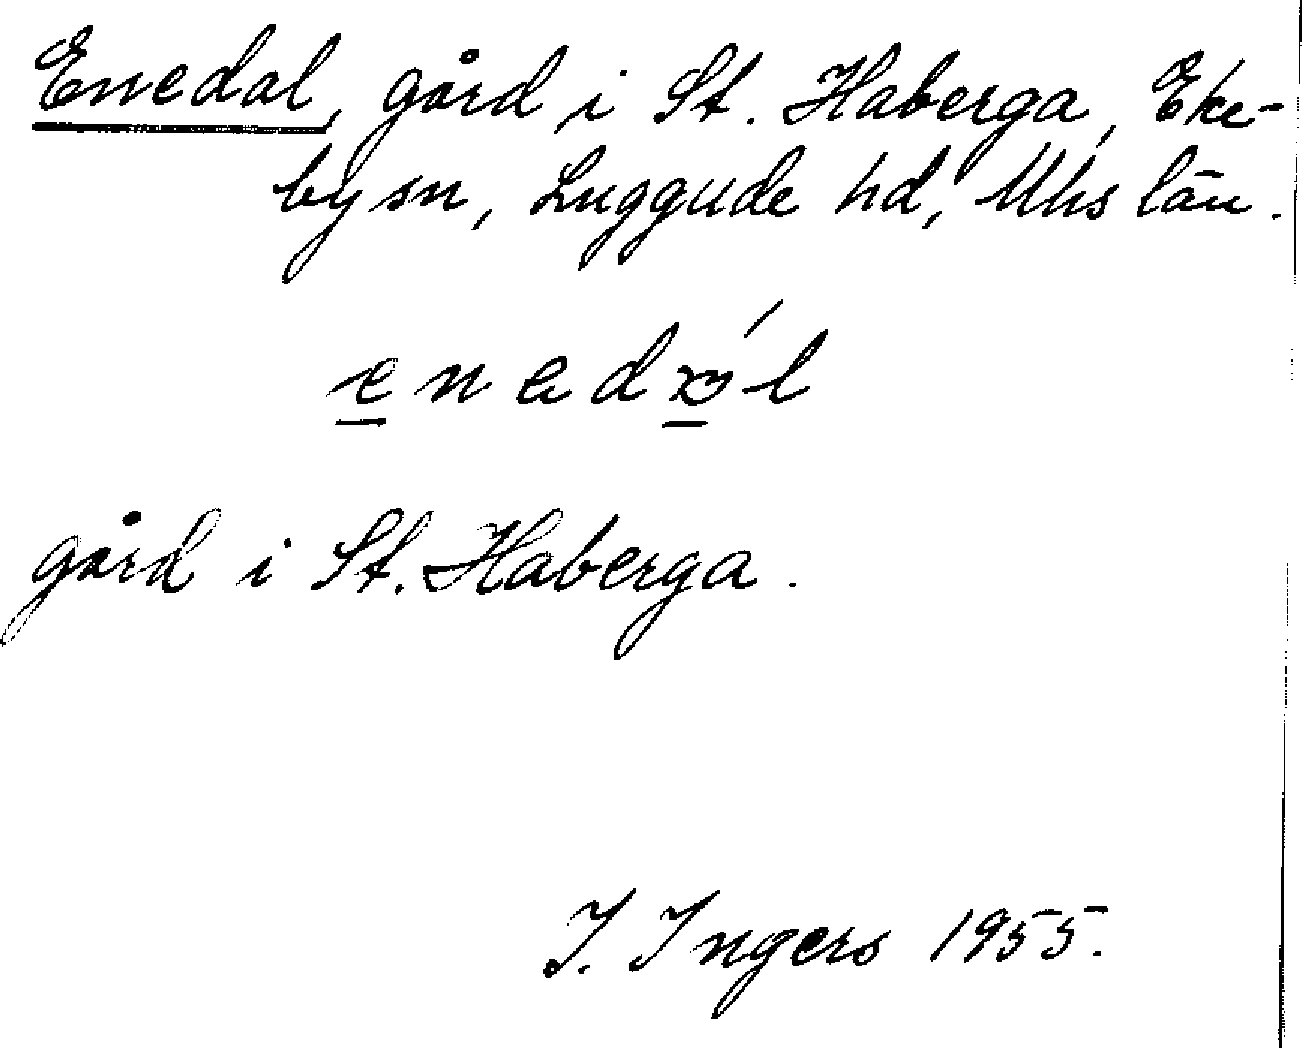 Enedal, gård i St. Haberga, Eke-
bysn, Luggude hd, Mhs län.
gård i St. Haberga.
I. Ingers 1955.